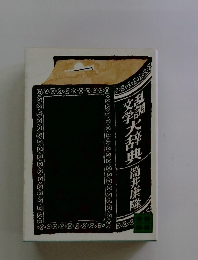 乱調
文学大辞典
筒井康隆